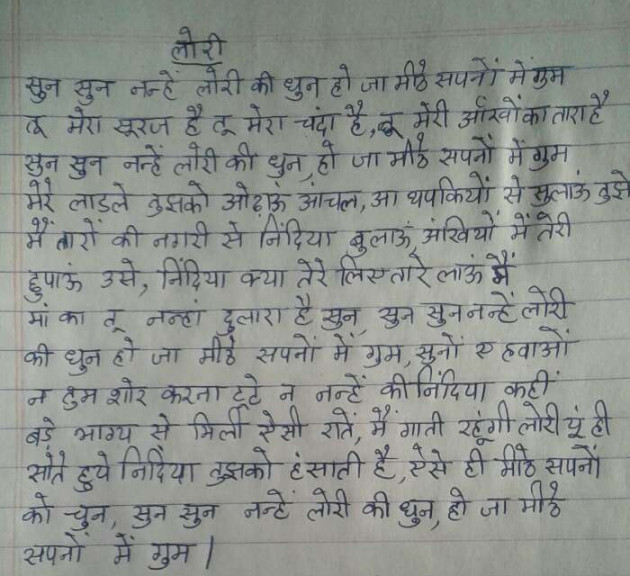 लोरी
सुन सुन नन्हें लोरी की धुन हो जा मीठे सपनों में गुम
तू मेरा सूरज है तू मेरा चंदा है, तू मेरी आँखों का तारा है
सुन सुन नन्हें लोरी की धुन, हो जा मीठे सपनों में गुम
मेरे लाडले तुझको ओढ़ाऊं आंचल, आ थपकियों से सुलाऊं तुझे
मैं तारों की नगरी से निंदिया बुलाऊं, अंखियों में तेरी
छुपाऊं उसे, निंदिया क्या तेरे लिए तारे लाऊं मैं
मां का तू नन्हां दुलारा है सुन, सुन सुन नन्हें लोरी
की धुन हो जा मीठे सपनों में गुम, सुनों ए हवाओं
न तुम शोर करना टूटे न नन्हें की निंदिया कहीं
बड़े भाग्य से मिली ऐसी रातें, मैं गाती रहूंगी लोरी यूं ही
सोते हुये निदिंया तुझको हंसाती है, ऐसे ही मीठे सपनों
को चुन, सुन सुन नन्हें लोरी की धुन, हो जा मीठे
सपनों में गुम।